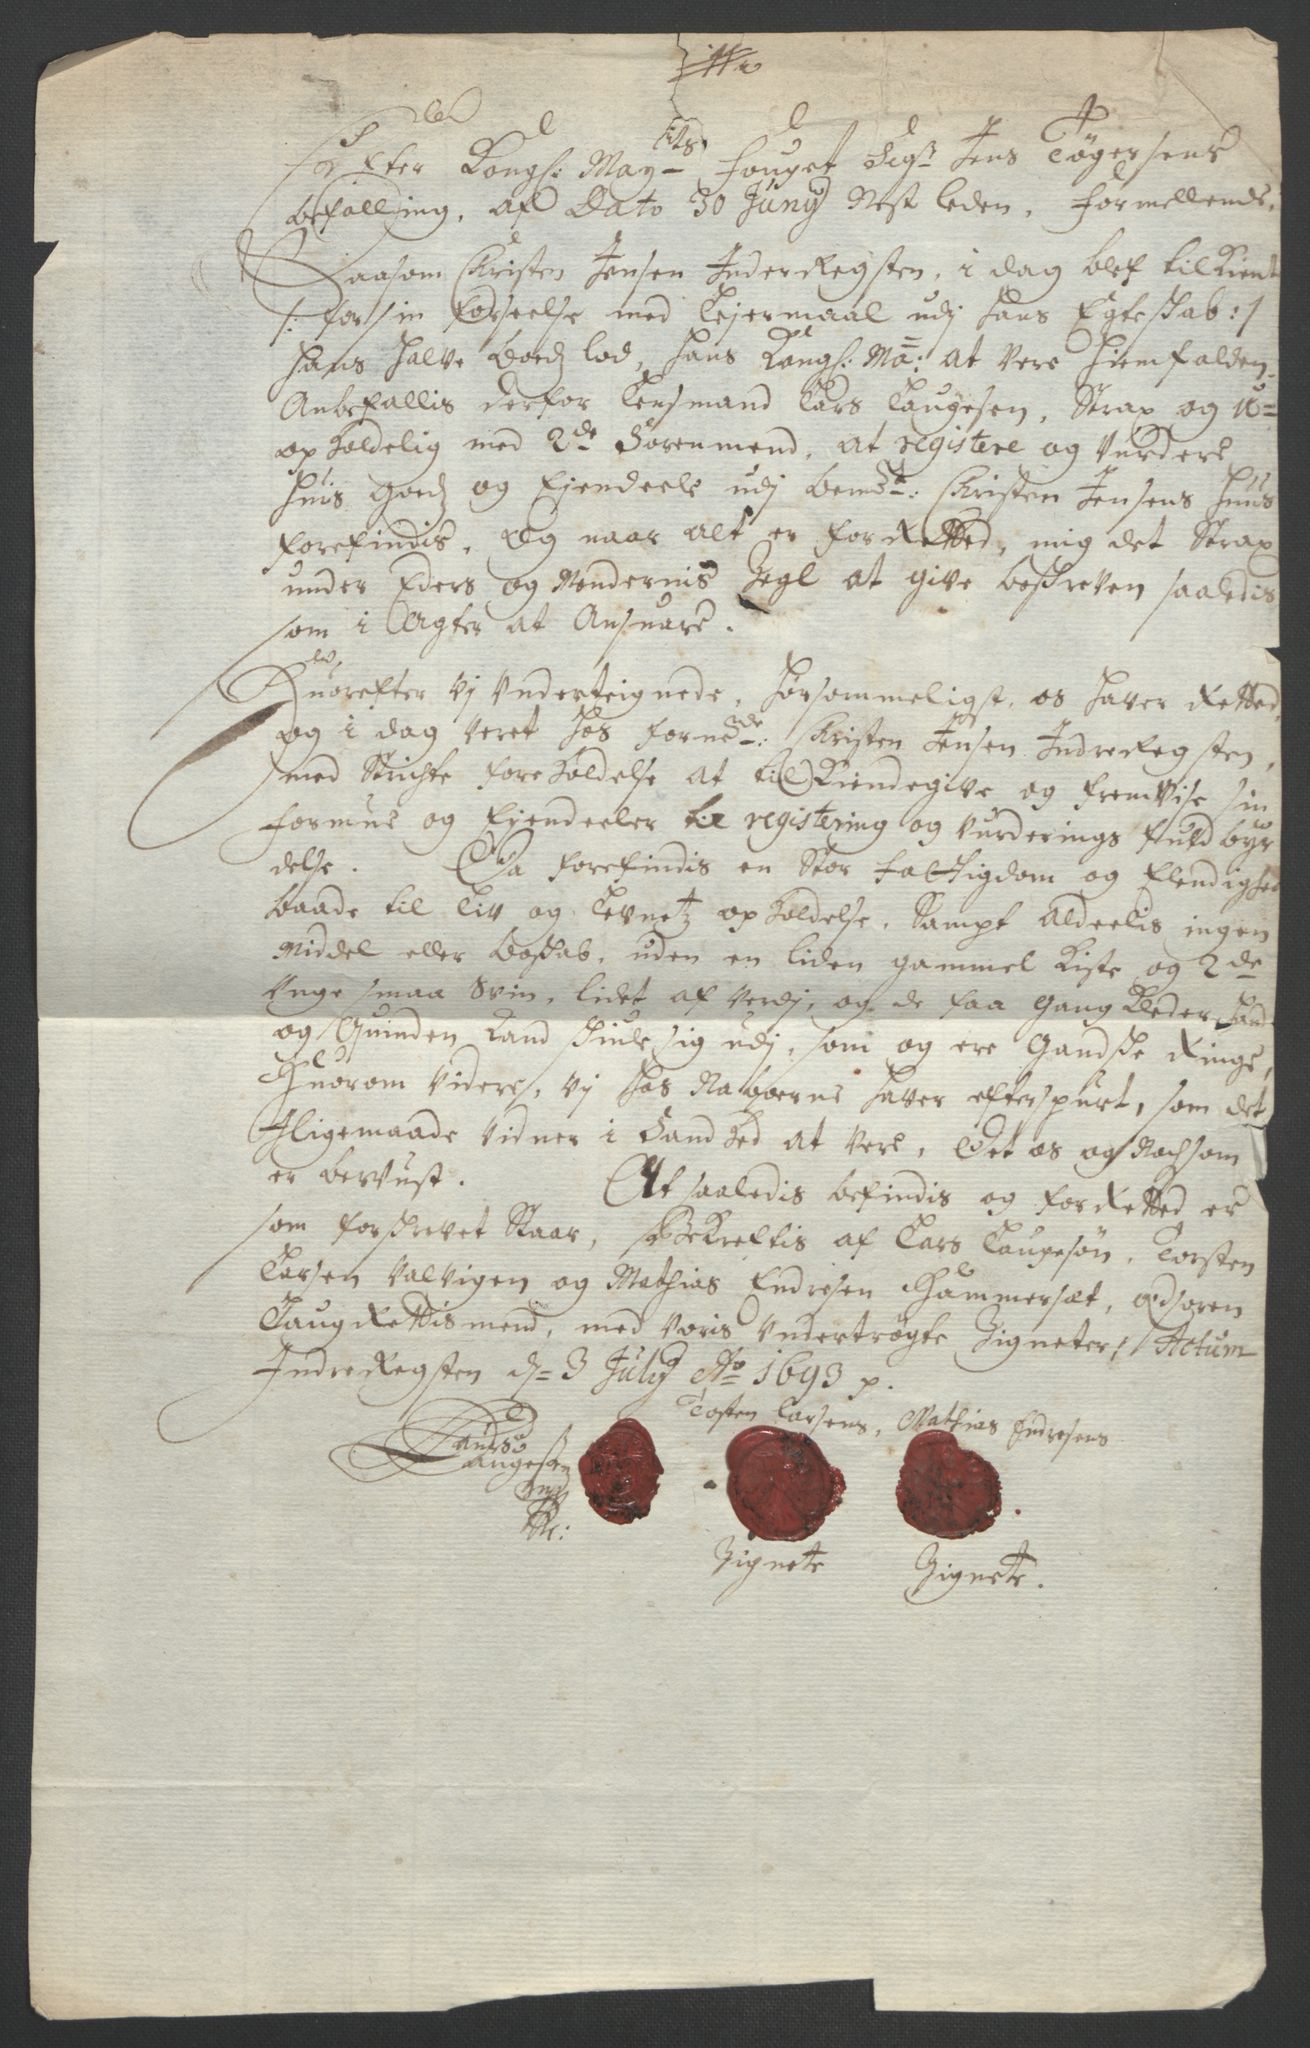 Efter Kongl: May:ts fouget Sigr Jens Tøgersens
befalling, af Dato 30 Juny Nest leden, formellende,
Saasom Christen Jensen Inderegsten, i dag blef tilkient
/: for sin forseelse med Lejermaal udj hans Egteskab :/
hans halve boedz lod, hans Kongl: Ma: at vere hiemfalden,
Anbefallis derfor Lensmand Lars Laugesen, Strax og u=
opholdelig med 2de Sorenmend, at registere og vurdere
hvis goedz og Ejendeele udj bemte: Christen Jensens huus
forefindis, Og naar alt er forretted, mig det Strax
under Eders og Mendernis Zegl at give beskreven saaledis
som i Agter at Ansvare.
Huorefter vj Underteignede, hørsommeligst, os haver Retted,
og i dag veret hos fornefnde: Christen Jensen Indre Regsten,
med Strichte foreholdelse at tilkiendegive og fremvise sin
formue og Ejendeeler til registering og vurderings fuldbyr
delse. Da forefindis en Stor fattigdom og Elendighed
baade til Liv og Levnetz opholdelse, Sampt aldeelis ingen
Middel eller boskab, uden en liden gammel Kiste og 2de
Unge smaa Svin, lidet af verdj, og de faa gang Kleder hand
og Quinden kand skiule sig udj, som og ere gandske Ringe,
Huorom videre, vj hos Naboerne haver efterspurt, som det
Iligemaade vidner i Sandhed at vere, Det os og Nochsom
er bevust. At saaledis befindis og forretted er
som forskrevet Staar, bekreftis af Lars Laugesøn, Torsten
Larsen Valvigen og Mathias Endresen Hammersæt, Edsoren
Laugrettismend, med voris undertrøgte Zigneter // Actum
Indre Regsten d= 3 July Ao 1693 p.
Tosten Larsens, Mathias Endresens
Laurs
Laugesen
Zignete Zignete.